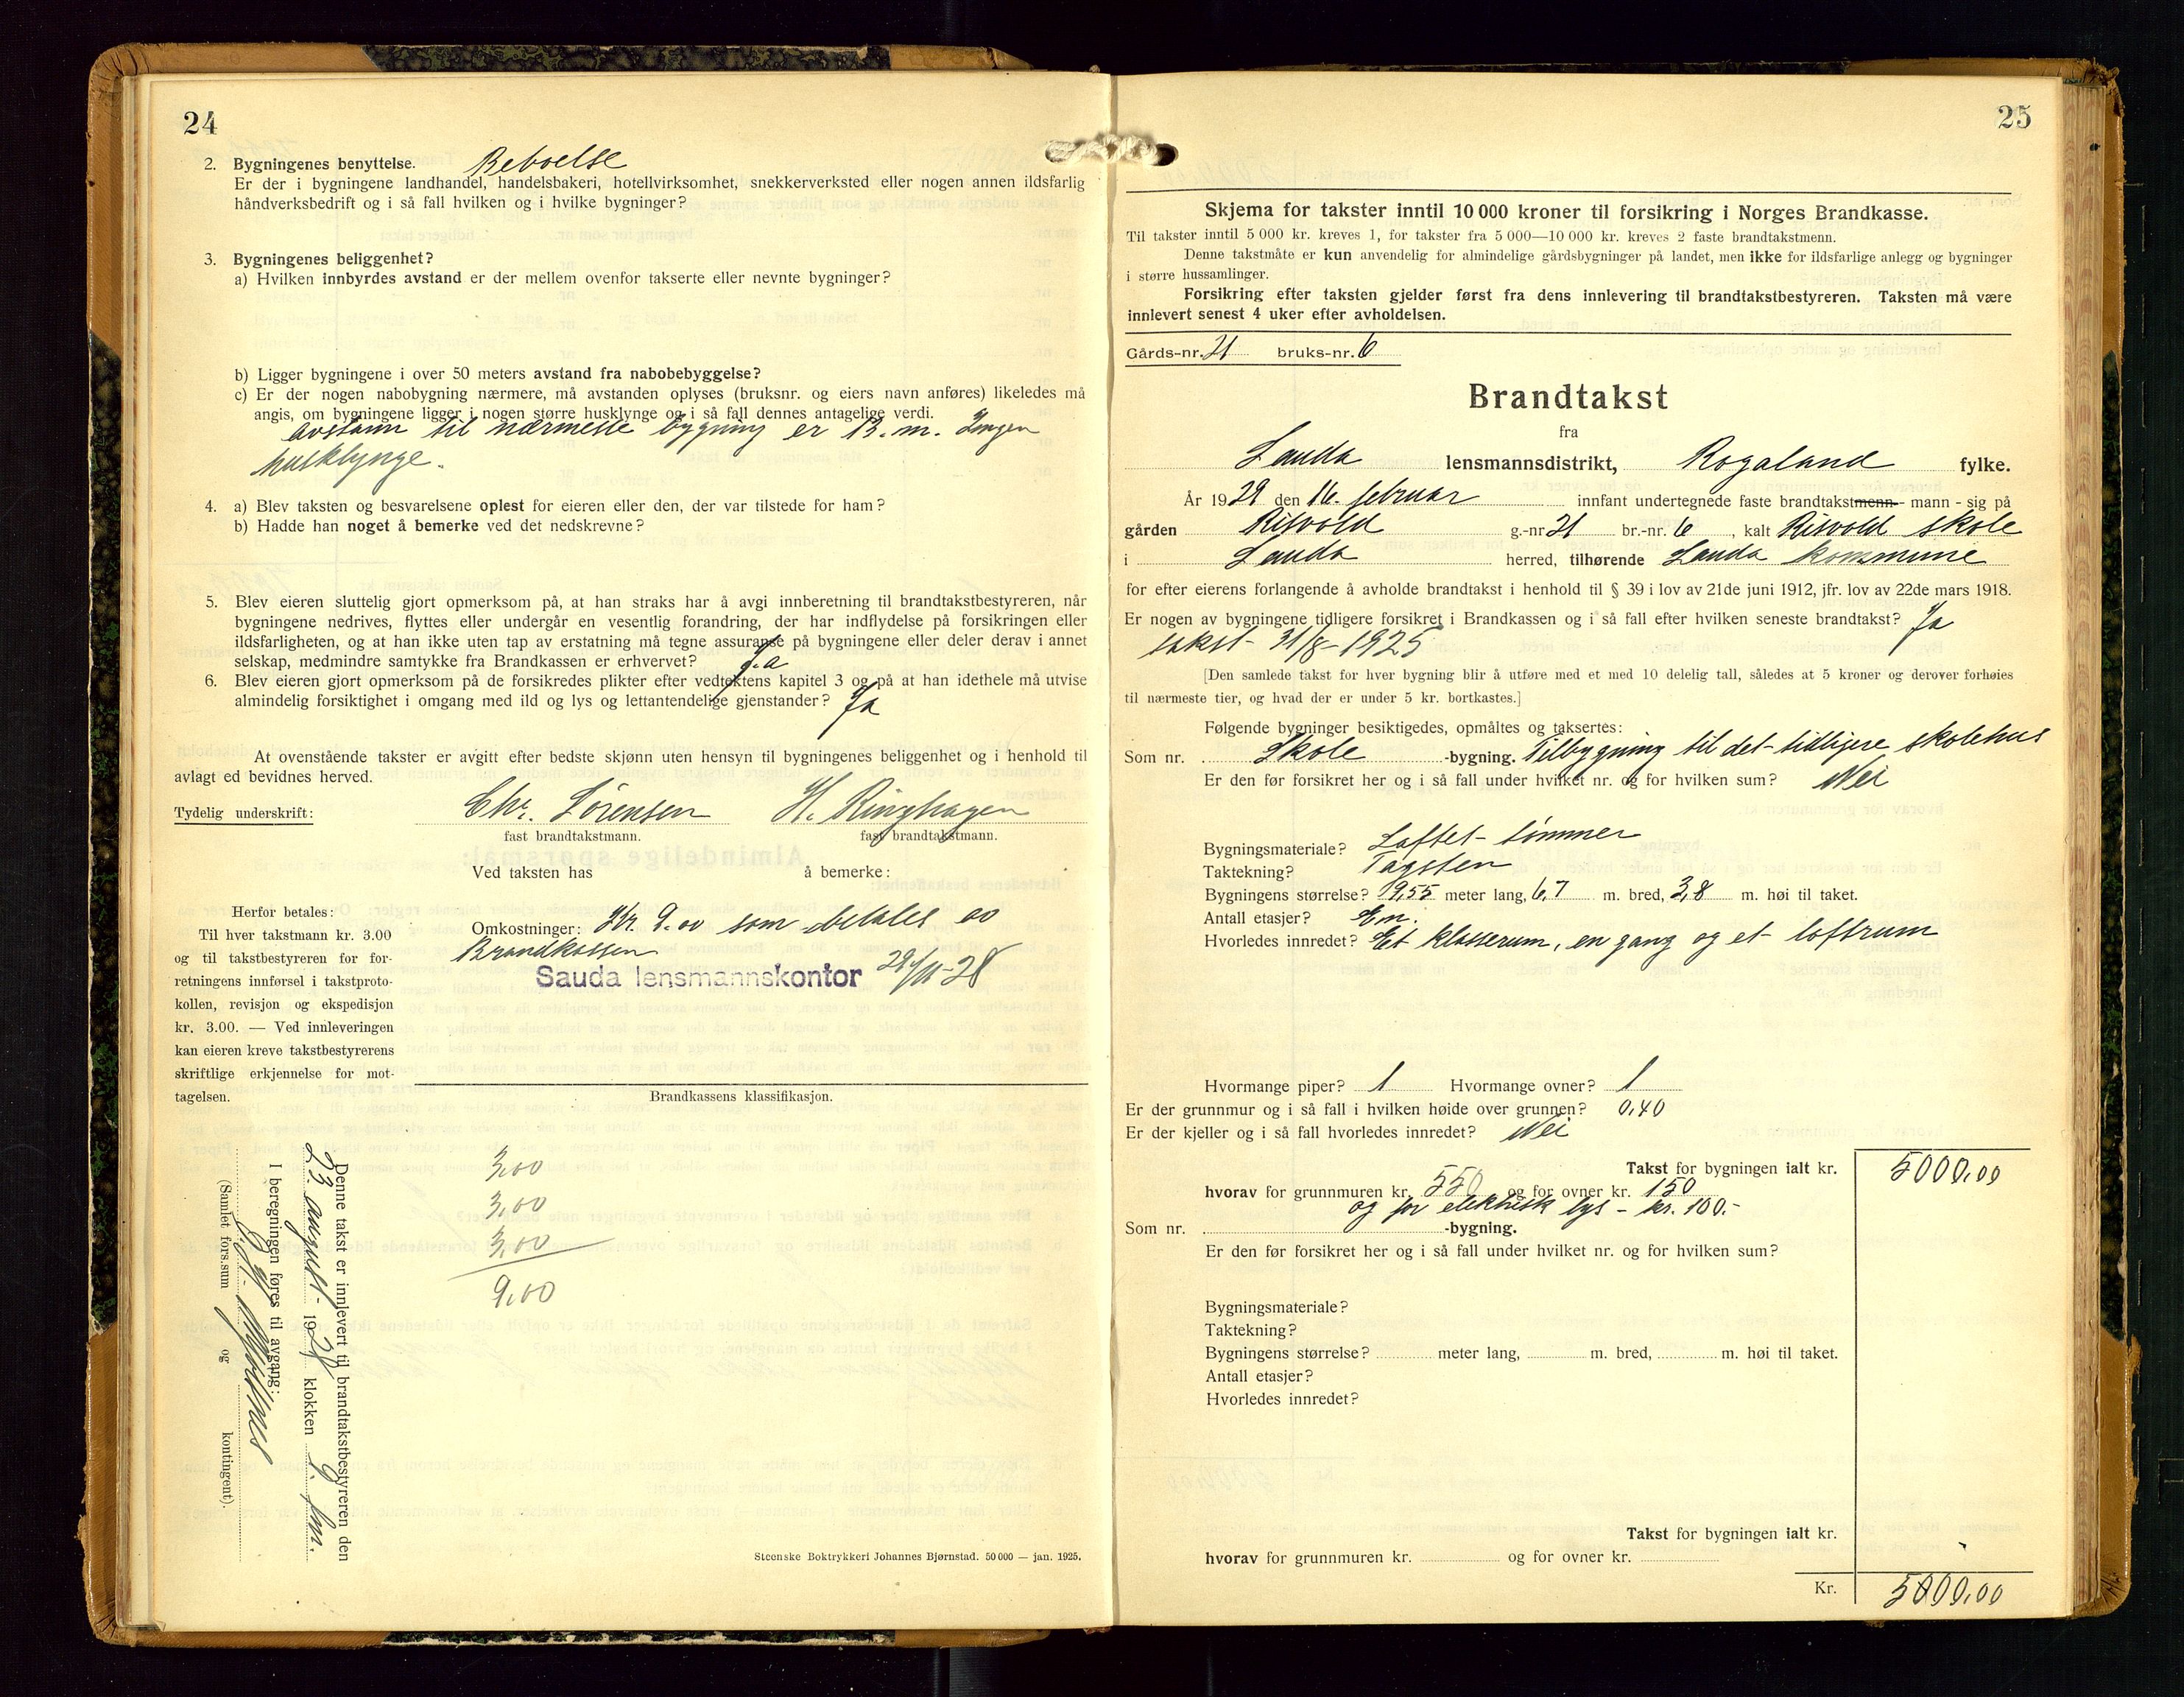 24
2. Bygningenes benyttelse. Beboelse
Er der i bygningene landhandel, handelsbakeri, hotellvirksomhet, snekkerverksted eller nogen annen ildsfarlig
håndverksbedrift og i så fall hvilken og i hvilke bygninger?
3. Bygningenes beliggenhet?
a) Hvilken innbyrdes avstand er der mellem ovenfor takserte eller nevnte bygninger?
b) Ligger bygningene i over 50 meters avstand fra nabobebyggelse?
c) Er der nogen nabobygning nærmere, må avstanden oplyses (bruksnr. og eiers navn anføres) likeledes må
angis, om bygningene ligger i nogen større husklynge og i så fall dennes antagelige verdi.
Avstann til nærmeste bygning er 13. m. Ingen
husklynge.
4. a) Blev taksten og besvarelsene oplest for eieren eller den, der var tilstede for ham?
b) Hadde han noget å bemerke ved det nedskrevne?
5. Blev eieren sluttelig gjort opmerksom på, at han straks har å avgi innberetning til brandtakstbestyreren, når
bygningene nedrives, flyttes eller undergår en vesentlig forandring, der har indflydelse på forsikringen eller
ildsfarligheten, og at han ikke uten tap av erstatning må tegne assuranse på bygningene eller deler derav i annet
selskap, medmindre samtykke fra Brandkassen er erhvervet? Ja
6. Blev eieren gjort opmerksom på de forsikredes plikter efter vedtektens kapitel 3 og på at han idethele må utvise
almindelig forsiktighet i omgang med ild og lys og lettantendelige gjenstander? Ja
At ovenstående takster er avgitt efter bedste skjønn uten hensyn til bygningenes beliggenhet og i henhold til
avlagt ed bevidnes herved.
Tydelig underskrift: Chr. Sørensen H. Ringhagen
fast brandtakstmann. fast brandtakstmann.
Ved taksten has å bemerke:
Herfor betales:
Til hver takstmann kr. 3.00
og til takstbestyreren for for-
retningens innførsel i takstproto-
kollen, revisjon og ekspedisjon
kr. 3.00. — Ved innleveringen
kan eieren kreve takstbestyrerens
skriftlige erkjennelse for mot-
tagelsen.
Omkostninger: Kr. 9.00 som betales av
Brandkassen
Sauda lensmannskontor 29/11-28
Brandkassens klassifikasjon.
3,00
3,00
3,00
9,00
Denne takst er innlevert til brandtakstbestyreren den
23 august 1928 klokken 9 fm.
I beregningen føres til avgang:
(Samlet fors.sum og kontingent).
Steenske Boktrykkeri Johannes Bjørnstad. 50 000 — jan. 1925.
25
Skjema for takster inntil 10 000 kroner til forsikring i Norges Brandkasse.
Til takster inntil 5 000 kr. kreves 1, for takster fra 5 000—10 000 kr. kreves 2 faste brandtakstmenn.
Denne takstmåte er kun anvendelig for almindelige gårdsbygninger på landet, men ikke for ildsfarlige anlegg og bygninger
i større hussamlinger.
Forsikring efter taksten gjelder først fra dens innlevering til brandtakstbestyreren. Taksten må være
innlevert senest 4 uker efter avholdelsen.
Gårds-nr. 21 bruks-nr. 6
Brandtakst
fra
Sauda lensmannsdistrikt, Rogaland fylke.
År 1929 den 16. februar innfant undertegnede faste brandtakstmenn - mann - sig på
gården Risvold g.-nr 21 br.-nr. 6, kalt Risvold skole
i Sauda herred, tilhørende Sauda kommune
for efter eierens forlangende å avholde brandtakst i henhold til § 39 i lov av 21de juni 1912, jfr. lov av 22de mars 1918.
Er nogen av bygningene tidligere forsikret i Brandkassen og i så fall efter hvilken seneste brandtakst? Ja
takst 31/8-1925
[Den samlede takst for hver bygning blir å utføre med et med 10 delelig tall, således at 5 kroner og derover forhøies
til nærmeste tier, og hvad der er under 5 kr. bortkastes.]
Følgende bygninger besiktigedes, opmåltes og taksertes:
Som nr. Skole -bygning. Tilbygning til det tidligere skolehus
Er den før forsikret her og i så fall under hvilket nr. og for hvilken sum? Nei
Bygningsmateriale? Laftet tømmer
Taktekning? Tagsten
Bygningens størrelse? 19,55 meter lang, 6,7 m. bred, 3,8 m. høi til taket.
Antall etasjer? En.
Hvorledes innredet? Et klasserum, en gang og et loftrum
Hvormange piper? 1 Hvormange ovner? 1
Er der grunnmur og i så fall i hvilken høide over grunnen? 0,40
Er der kjeller og i så fall hvorledes innredet? Nei
Takst for bygningen ialt kr. 5000,00
hvorav for grunnmuren kr. 550 og for ovner kr. 150
og for elektrisk lys - kr. 100.-
Som nr. -bygning.
Er den før forsikret her og i så fall under hvilket nr. og for hvilken sum?
Bygningsmateriale?
Taktekning?
Bygningens størrelse? meter lang, m. bred, m. høi til taket.
Antall etasjer?
Hvorledes innredet?
Takst for bygningen ialt kr.
hvorav for grunnmuren kr. og for ovner kr.
Kr. 5000,00